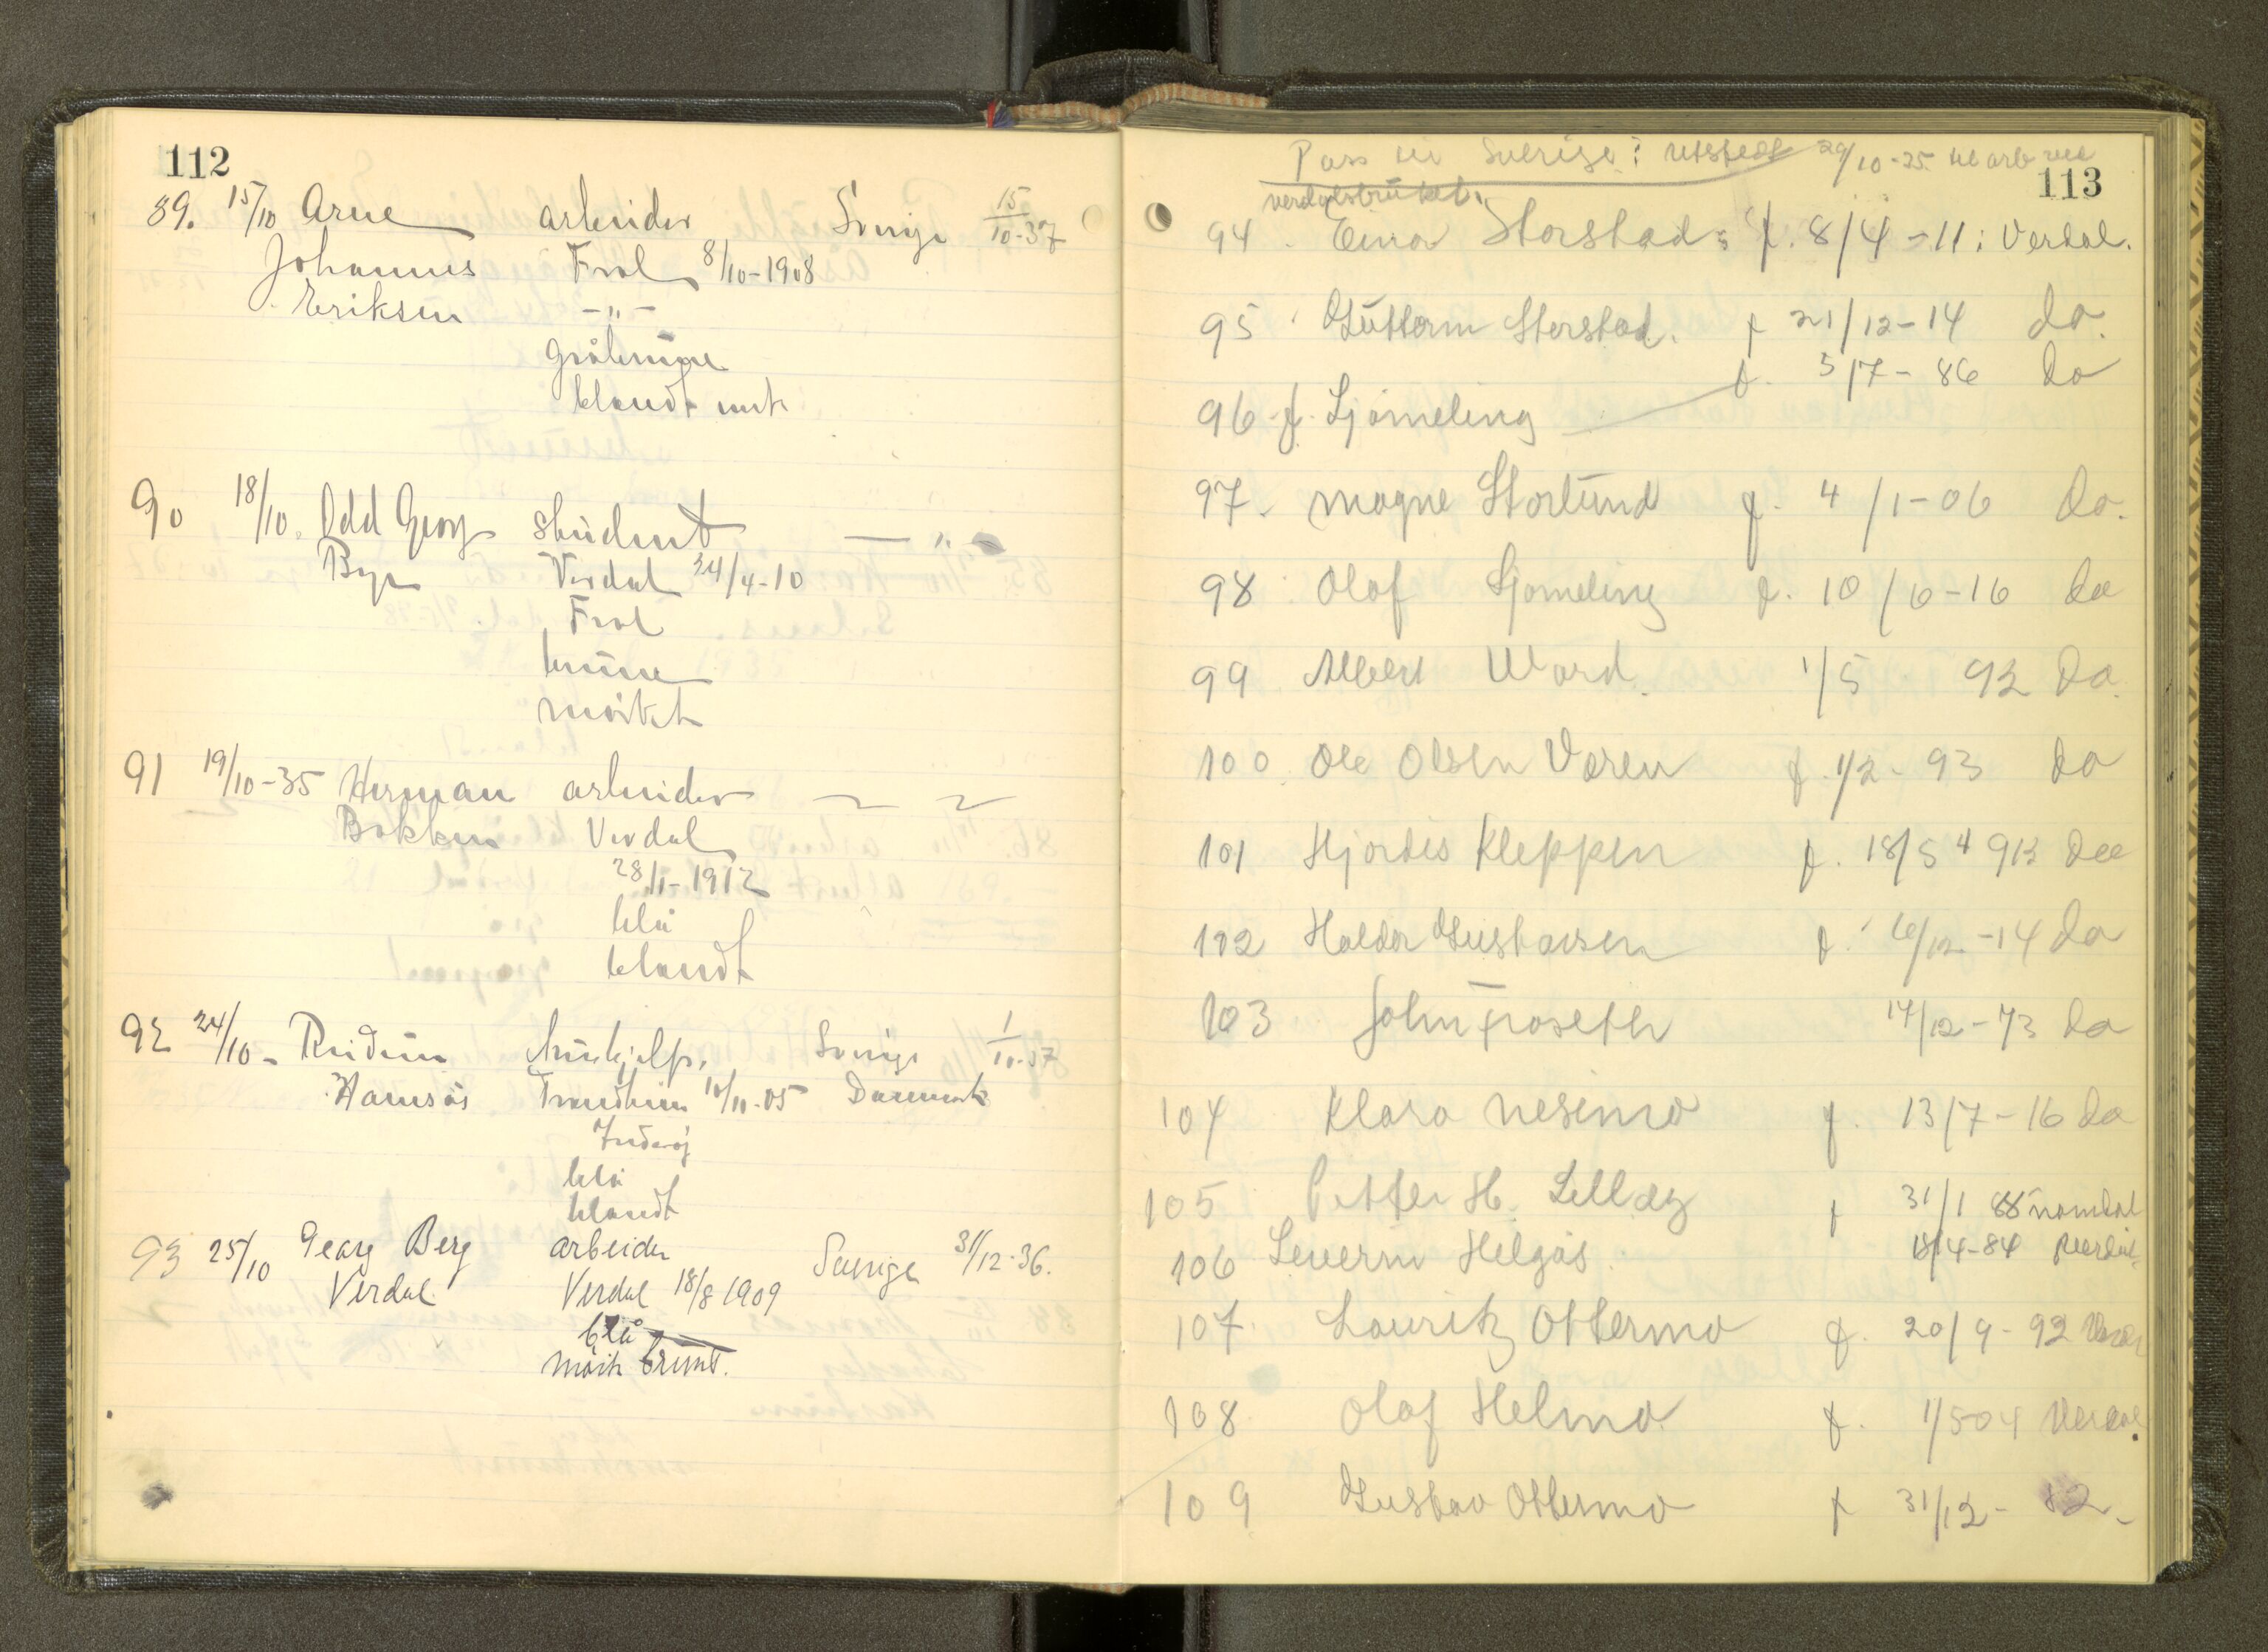 112
89. 15/10 Arne arbeider Sverige 15/10-37
Johannes Frol 8/10-1908
Eriksen -"-
gråbrune
blandt mørk
90 18/10. Odd Georg student — "
Bye Verdal 24/4-10
Frol
brune
mørkt
91 19/10-35 Herman arbeider
Bakken Verdal
28/1-1912
blå
blandt
92 24/10- Reidun Sverige 1/10-37
Hamsås Trondheim 10/11-05 Danmark
Inderøy
blå
blandt
93 25/10 Georg Berg arbeider Sverige 31/12-36.
Verdal Verdal 18/8 1909
blå
mørk brunt.
113
Pass til Sverige: utstedt 29/10-35 til arb ved
verdalsbruket.
94. Einar Storstad: f. 8/4-11: Verdal.
95. Guttorm Storstad. f 21/12-14 do.
f. 5/7-86 do
96 Ljømeling
97. Magne Storlund f. 4/1-06 do.
98 Olaf Ljømeling f. 10/6-16 do
99 Albert Ward. 1/5 92 do.
100 Ole Olsen Væren f. 1/2-93 do
101 Hjordis Kleppen f. 18/5 do
102 Haldor Gustavsen f. 6/12-14 do
103 John Froseth 14/12-73 do
104 Klara Nesimo f. 13/7-16 do
105 Petter H. f 31/1 88 Namdal
106 Severin Helgås. 18/4-84 Verdal.
107. Lauritz Ottermo f. 20/9-92
108 Olaf Helmo f. 1/5 04 Verdal.
109 Gustav Ottermo f 31/12-82-